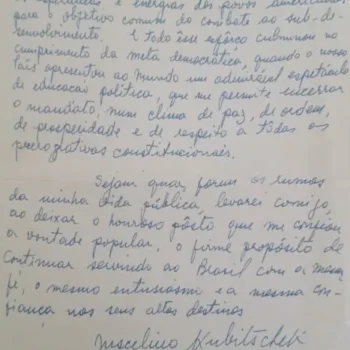 as esperanças e energias dos povos americanos
para o objetivo comum do combate ao sub-de-
senvolvimento. E todo êsse esfôrço culminou no
cumprimento da meta democrática, quando o nosso
País apresentou ao mundo um admirável espetáculo
de educação política, que me permite encerrar
o mandato, num clima de paz, de ordem,
de prosperidade e de respeito a tôdas as
prerrogativas constitucionais.
Sejam quais forem os rumos
da minha vida pública, levarei comigo,
ao deixar o honroso pôsto que me confiou
a vontade popular, o firme propósito de
continuar servindo ao Brasil com a mesma
fé, o mesmo entusiasmo e a mesma con-
fiança nos seus altos destinos
Juscelino Kubitschek